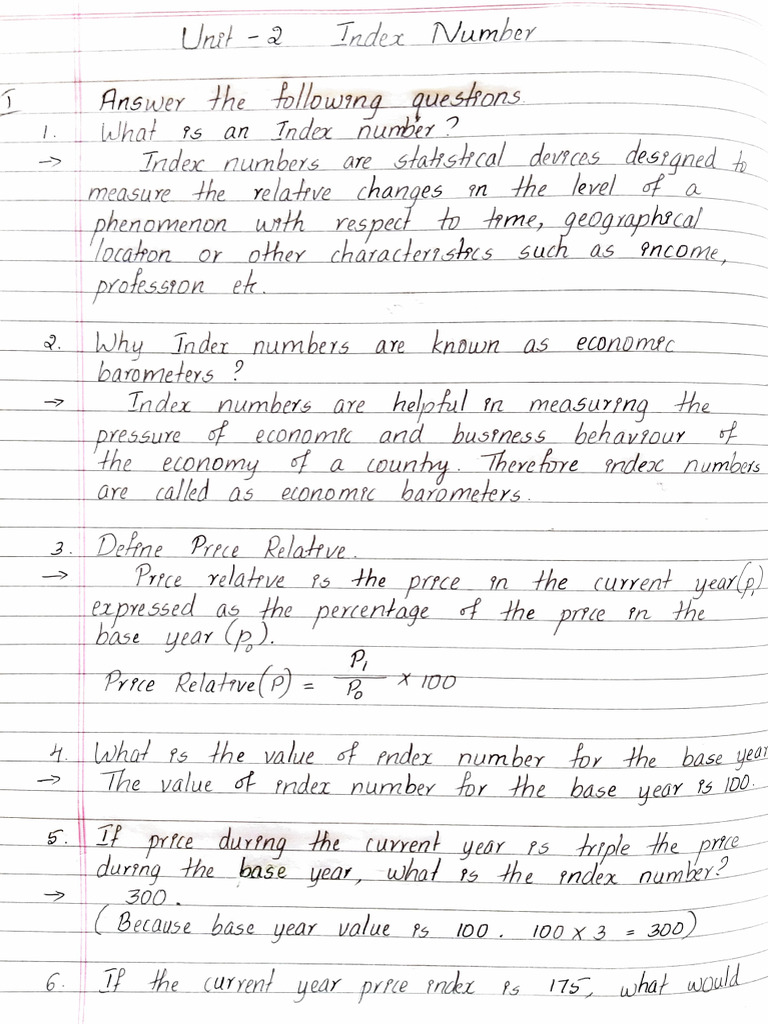 Unit - 2 Index Number
I Answer the following questions.
1. What is an Index number?
→ Index numbers are statistical devices designed to
measure the relative changes in the level of a
phenomenon with respect to time, geographical
location or other characteristics such as income,
profession etc.
2. Why Index numbers are known as economic
barometers?
→ Index numbers are helpful in measuring the
pressure of economic and business behaviour of
the economy of a country. Therefore index numbers
are called as economic barometers.
3. Define Price Relative.
→ Price relative is the price in the current year (p₁)
expressed as the percentage of the price in the
base year (p₀).
Price Relative (P) = P₁/P₀ × 100
4. What is the value of index number for the base year
→ The value of index number for the base year is 100.
5. If price during the current year is triple the price
during the base year, what is the index number?
→ 300.
(Because base year value is 100. 100 × 3 = 300)
6. If the current year price index is 175, what would